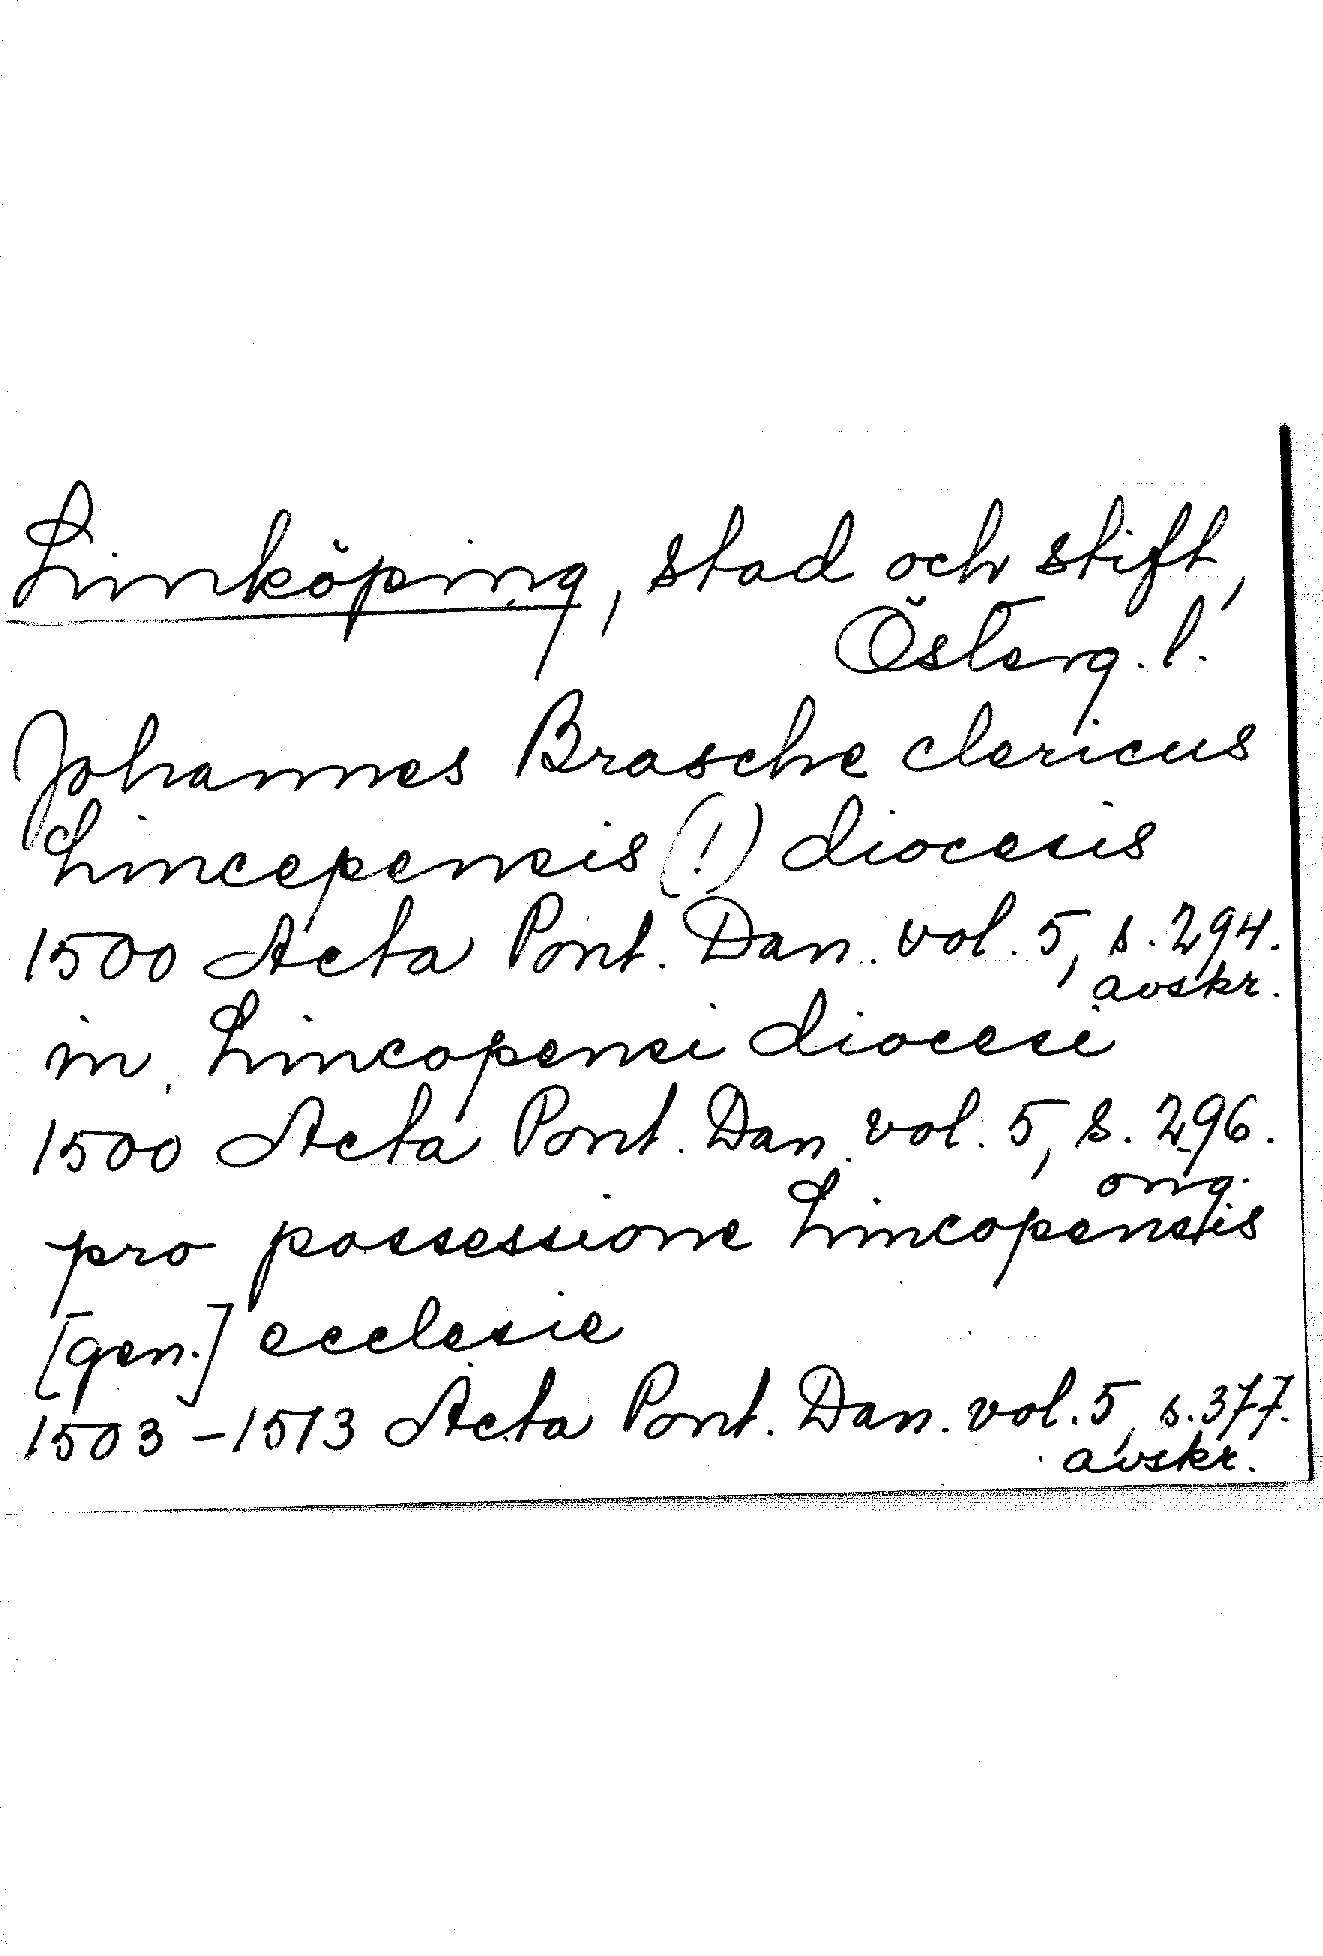 Linköping, stad och stift,
Österg. l.
Johannes Brasche clericus
Lincepensis (!) diocesis
1500 Acta Pont. Dan. vol. 5, s. 294.
avskr.
in Lincopensi diocesi
1500 Acta Pont. Dan. vol. 5, s. 296.
orig.
pro possessione Lincopensis
[gen.] ecclesie
1503-1513 Acta Pont. Dan. vol. 5, s. 377.
avskr.